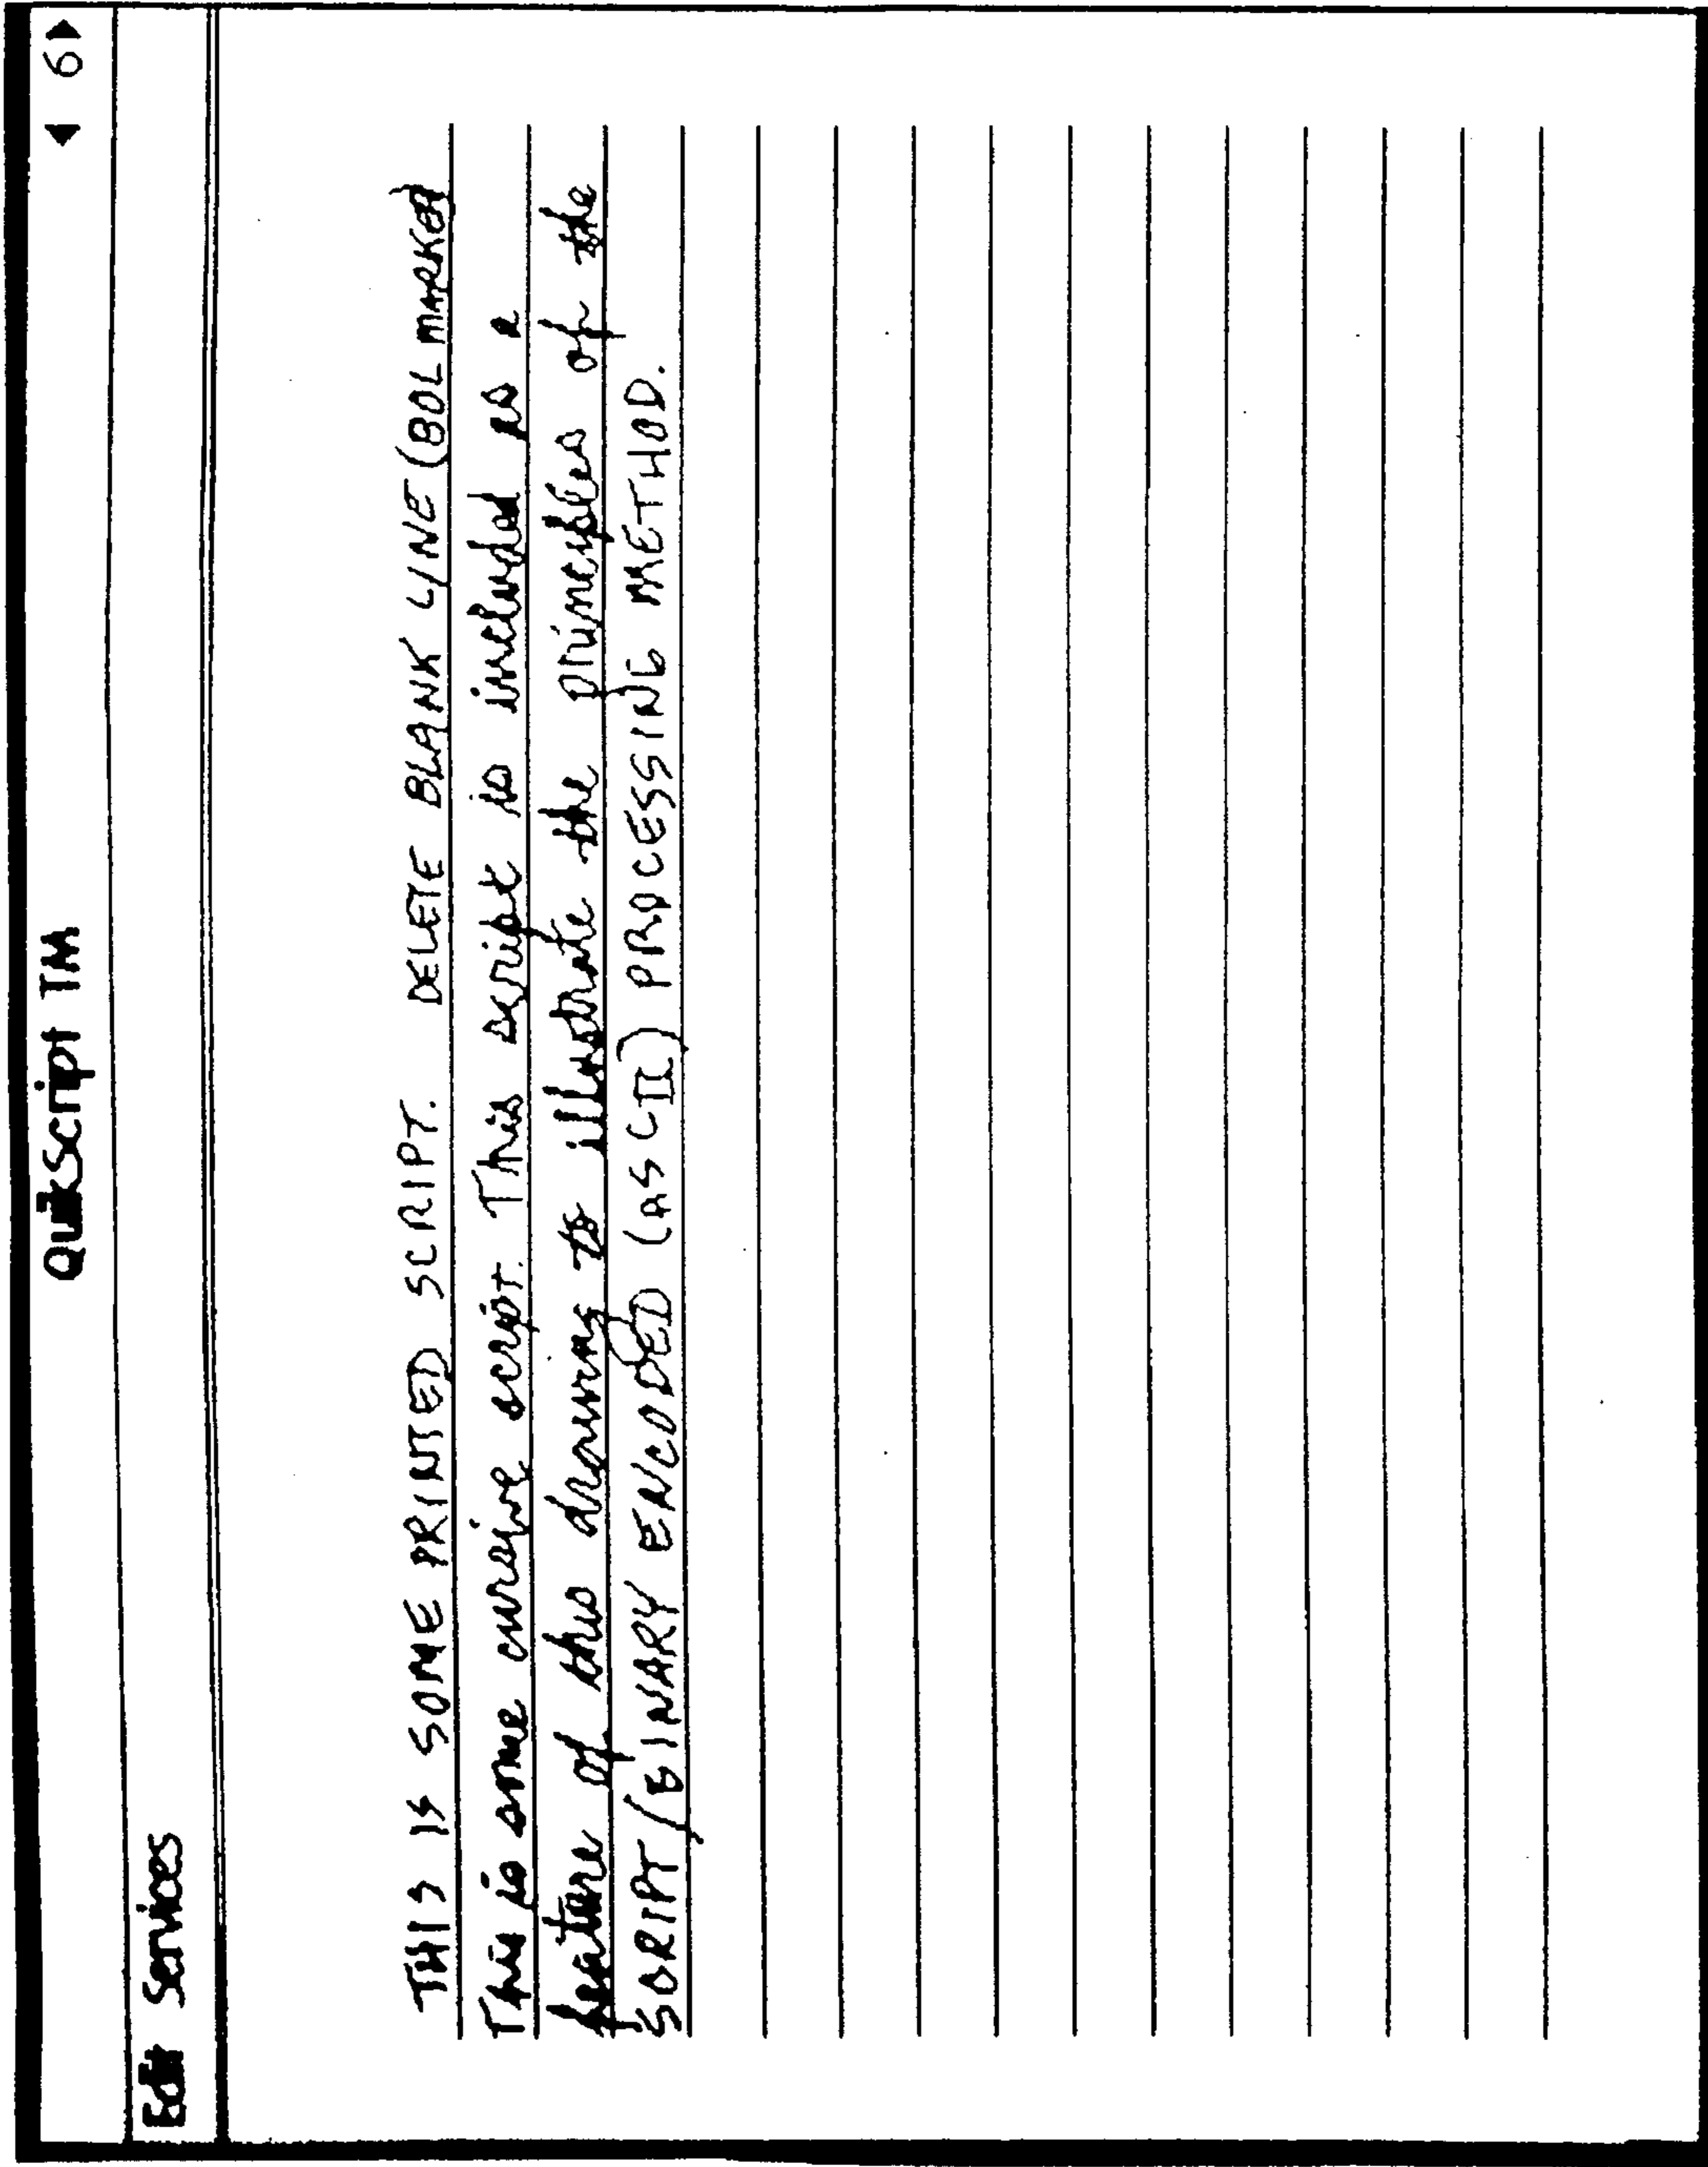 QuikScript TM ◀ 6 ▶
Edit Services
THIS IS SOME PRINTED SCRIPT. DELETE BLANK LINE (BOL MARKER)
This is some cursive script. This script is included as a
feature of this drawing to illustrate the principles of the
SCRIPT/BINARY ENCODED (ASCII) PROCESSING METHOD.